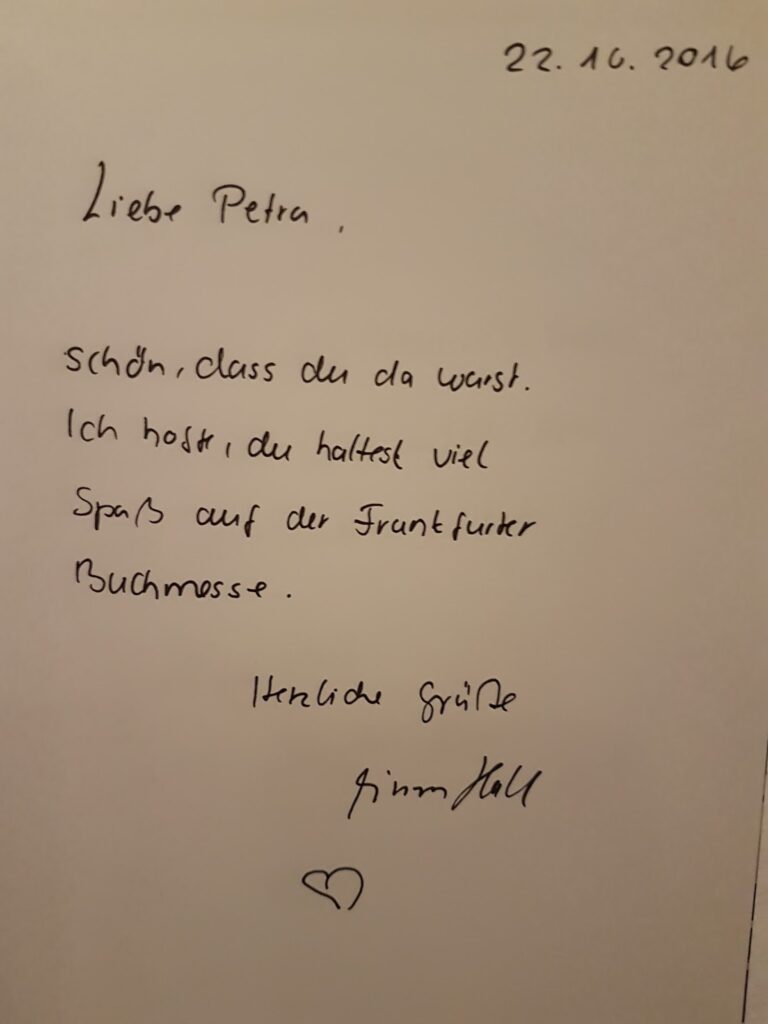 22. 10. 2016
Liebe Petra,
schön, dass du da warst.
Ich hoffe, du hattest viel
Spaß auf der Frankfurter
Buchmesse.
Herzliche Grüße
Hall